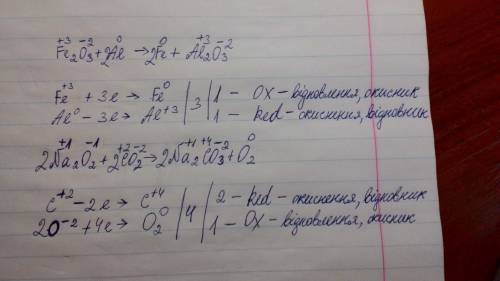 +3 -2 0 0 +3 -2
Fe₂O₃ + 2Al → 2Fe + Al₂O₃
Fe⁺³ + 3e → Fe⁰ | 3 | 1 - Ox - відновлення, окисник
Al⁰ - 3e → Al⁺³ | 1 - Red - окиснення, відновник
+1 -1 +2 -2 +1 +4 -2 0
2Na₂O₂ + 2CO₂ → 2Na₂CO₃ + O₂
C⁺² - 2e → C⁺⁴ | 4 | 2 - Red - окиснення, відновник
2O⁻² + 4e → O₂⁰ | 1 - Ox - відновлення, окисник